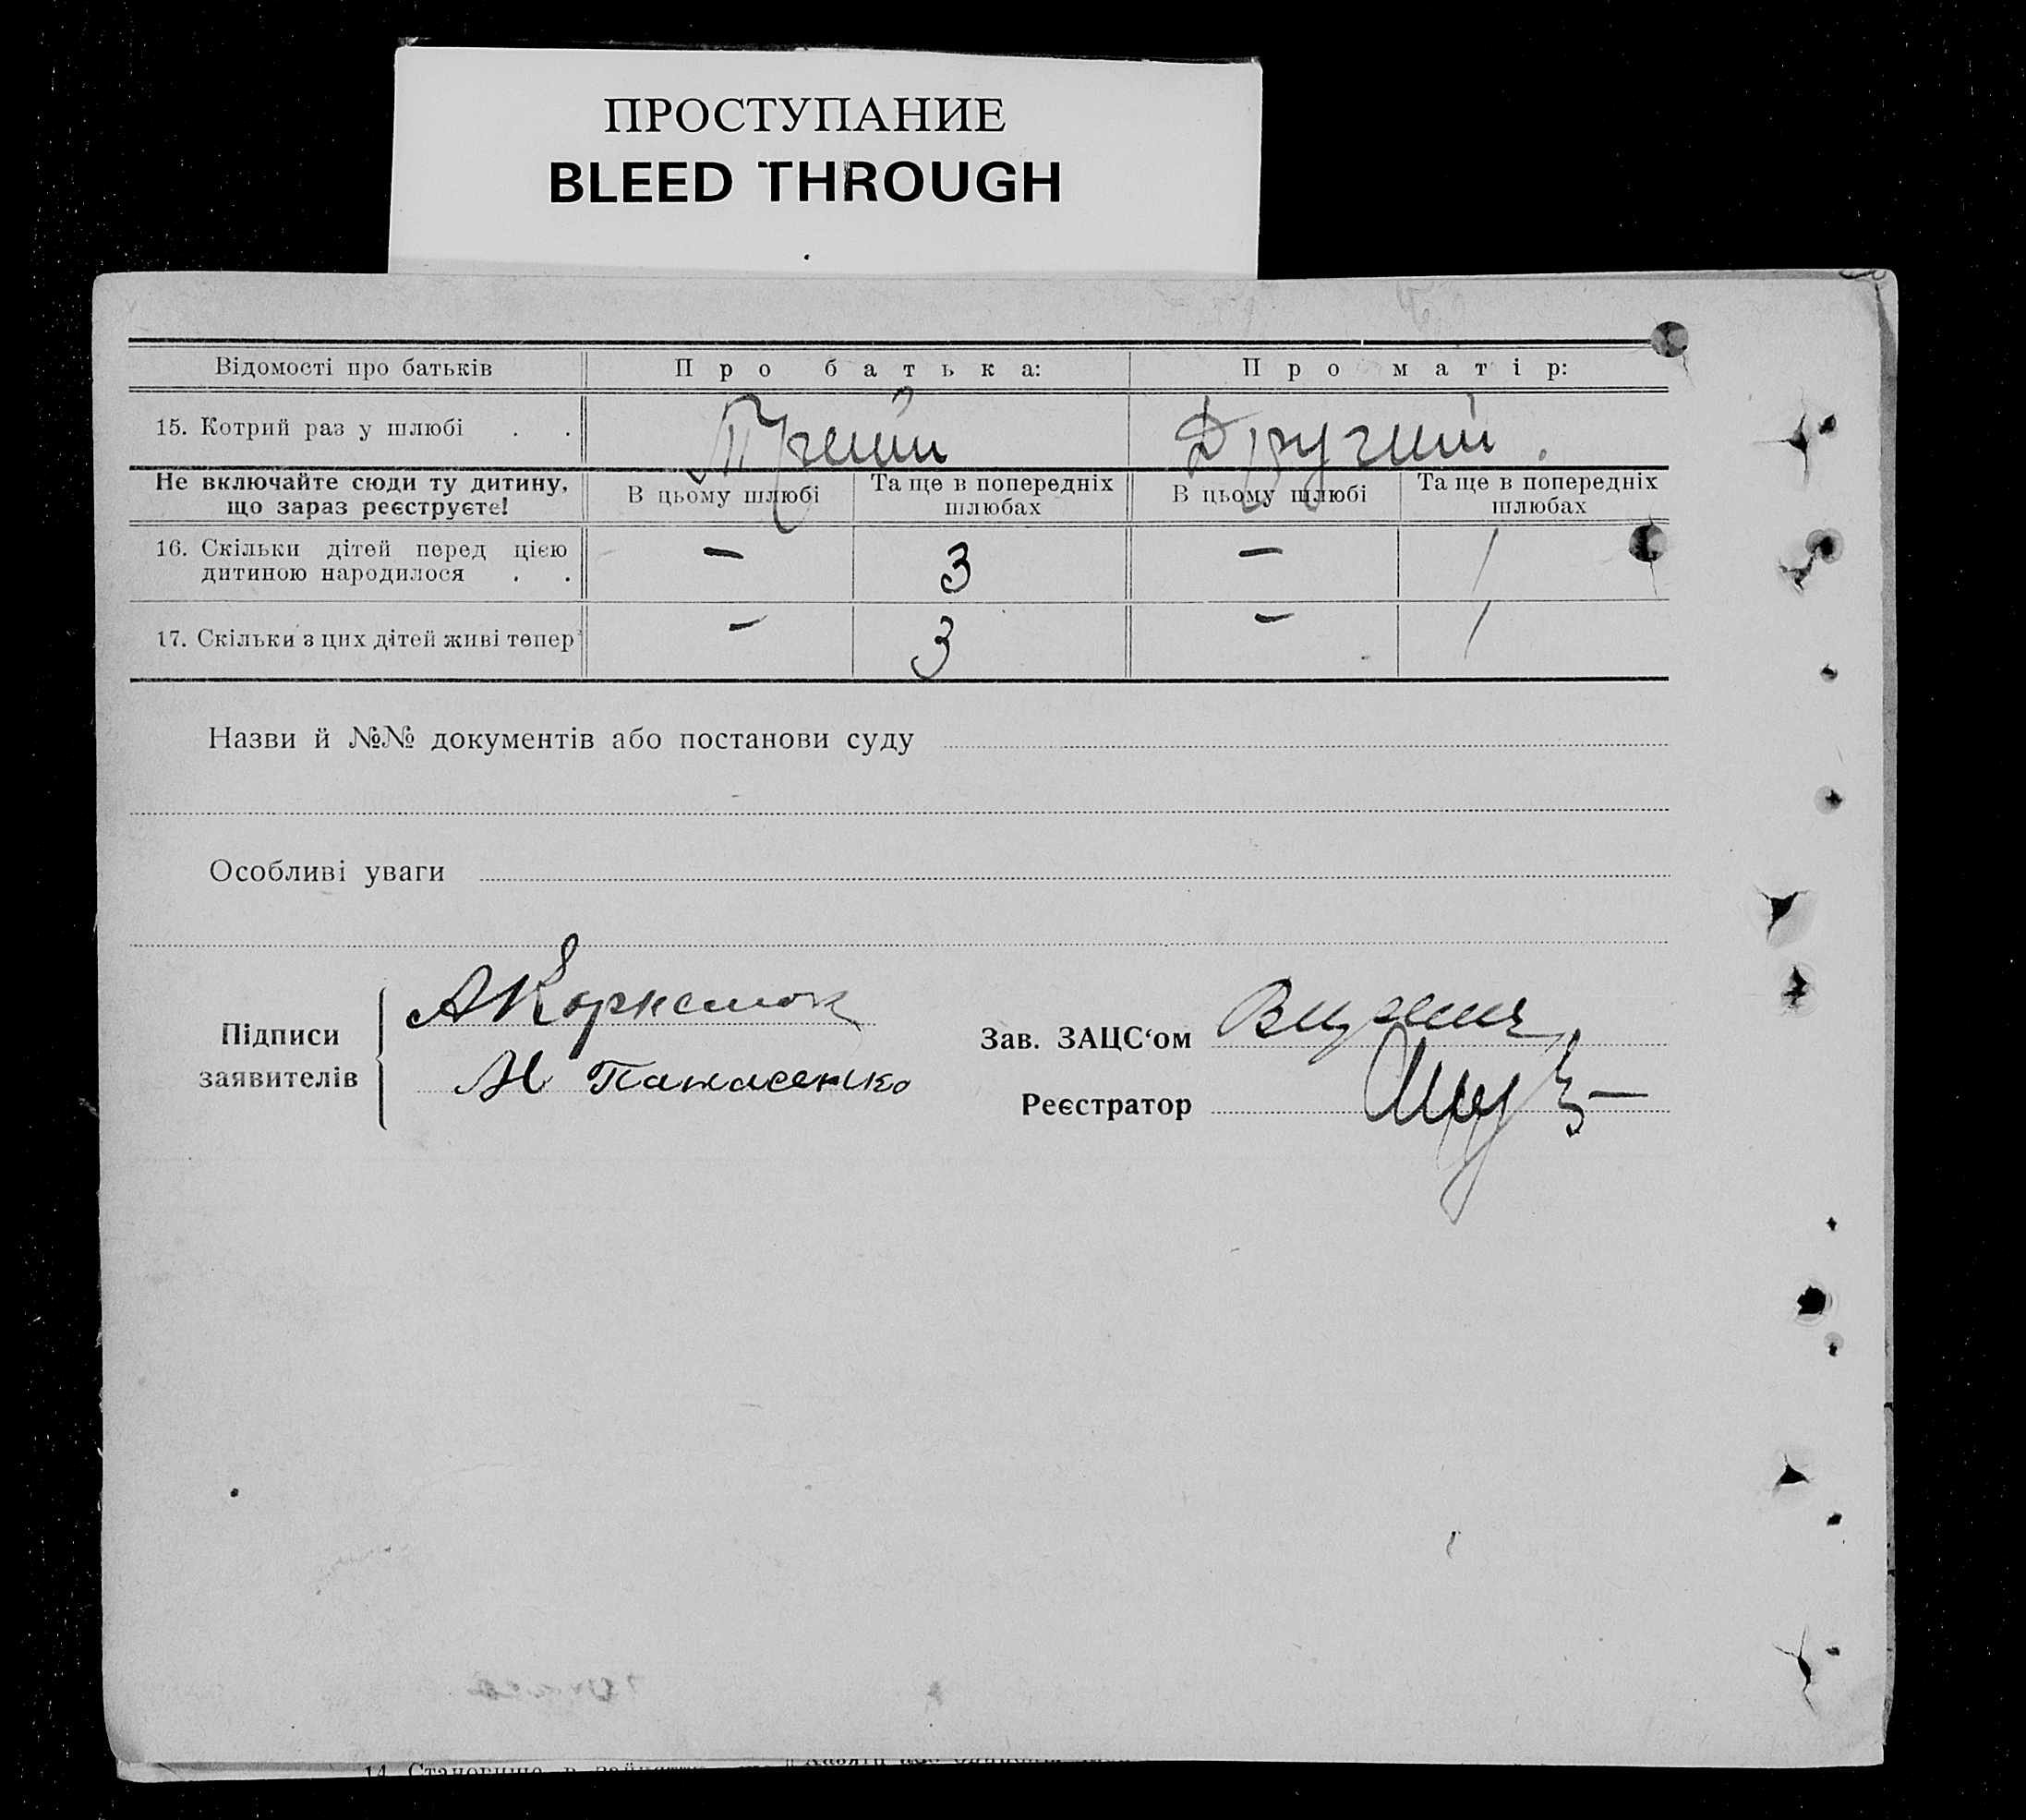 ПРОСТУПАНИЕ
BLEED THROUGH
Відомості про батьків Про батька: Про матір:
15. Котрий раз у шлюбі . . Другий .
Не включайте сюди ту дитину, що зараз реєструєте! В цьому шлюбі Та ще в попередніх шлюбах В цьому шлюбі Та ще в попередніх шлюбах
16. Скільки дітей перед цією
дитиною народилося . . — 3 — 1
17. Скільки з цих дітей живі тепер — 3 — 1
Назви й №№ документів або постанови суду
Особливі уваги
Підписи
заявителів
М Панасенко
Зав. ЗАЦС‘ом
Реєстратор
14. Становище в